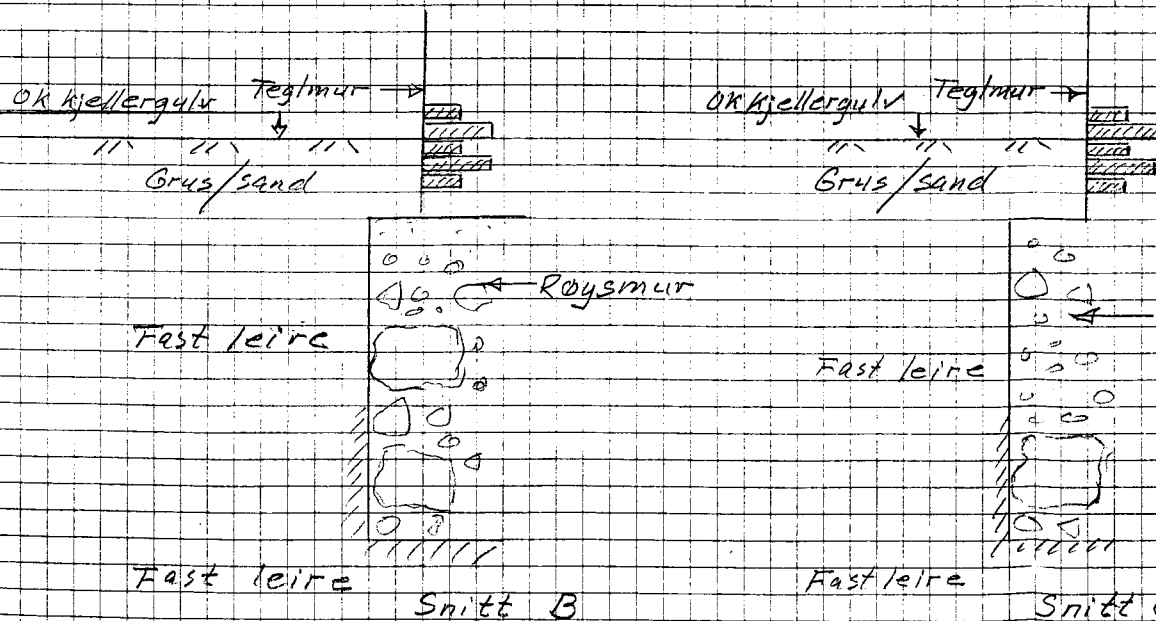 OK kjellergulv Teglmur
Grus/sand
Røysmur
Fast leire
Fast leire
Snitt B
OK kjellergulv Teglmur
Grus/sand
Fast leire
Fast leire
Snitt